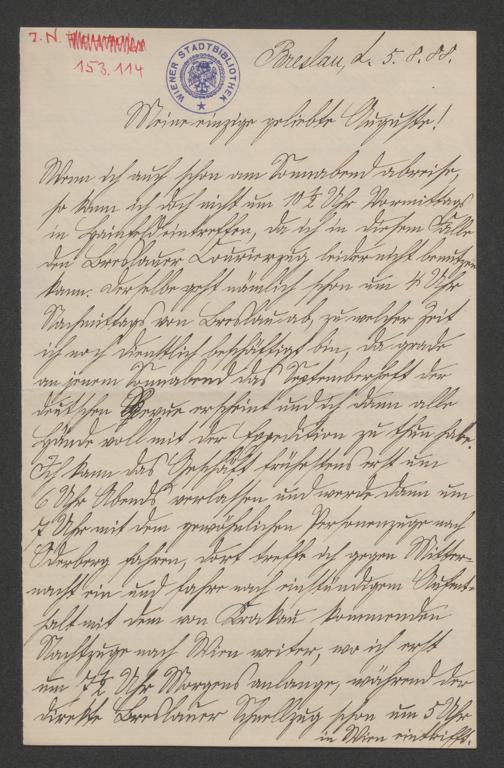 J. N.
153.114
WIENER STADTBIBLIOTHEK
Breslau, d. 5. 8. 88.
Meine einzige geliebte Auguste!
Wenn ich auch schon am Sonnabend abreise,
so kann ich doch nicht um 10 1/2 Uhr Vormittags
in Hainfeld eintreffen, da ich in diesem Falle
den Breslauer Courierzug leider nicht benutzen
kann. Derselbe geht nämlich schon um 4 Uhr
Nachmittags von Breslau ab, zu welcher Zeit
ich noch dienstlich beschäftigt bin, da gerade
an jenem Sonnabend das Septemberheft der
deutschen Revue erscheint und ich dann alle
Hände voll mit der Expedition zu thun habe.
Ich kann das Geschäft frühestens erst um
6 Uhr Abends verlassen und werde dann um
7 Uhr mit dem gewöhnlichen Personenzuge nach
Oderberg fahren, dort treffe ich gegen Mitter-
nacht ein und fahre nach einstündigem Aufent-
halt mit dem von Krakau kommenden
Nachtzuge nach Wien weiter, wo ich erst
um 7 1/2 Uhr Morgens anlange, während der
direkte Breslauer Schnellzug schon um 5 Uhr
in Wien eintrifft.